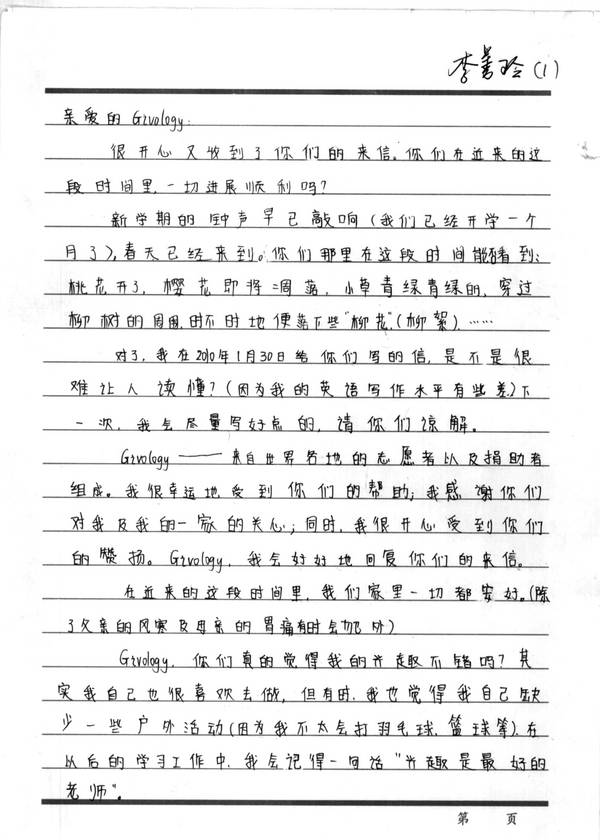 李善玲(1)
亲爱的Givology:
很开心又收到了你们的来信。你们在近来的这
段时间里,一切进展顺利吗?
新学期的钟声早已敲响(我们已经开学一个
月了),春天已经来到。你们那里在这段时间能看到:
桃花开了,樱花即将凋落,小草青绿青绿的,穿过
柳树的周围,时不时地便落下些"柳花"(柳絮)……
对了,我在2010年1月30日给你们写的信,是不是很
难让人读懂?(因为我的英语写作水平有些差)下
一次,我会尽量写好点的,请你们谅解。
Givology——来自世界各地的志愿者以及捐助者
组成。我很幸运地受到你们的帮助;我感谢你们
对我及我的一家的关心;同时,我很开心受到你们
的赞扬。Givology,我会好好地回复你们的来信。
在近来的这段时间里,我们家里一切都安好。(除
了父亲的风寒及母亲的胃痛有时会加外)
Givology,你们真的觉得我的兴趣不错吗?其
实我自己也很喜欢去做,但有时,我也觉得我自己缺
少一些户外活动(因为我不太会打羽毛球,篮球等),在
以后的学习工作中,我会记得一句话"兴趣是最好的
老师"。
第 页